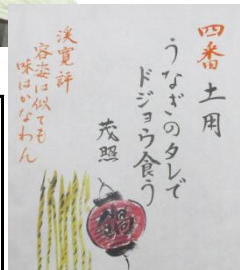 四番 土用
うなぎのタレで
ドジョウ食う
茂照
渓寛評
容姿は似ても
味はかなわん
鍋